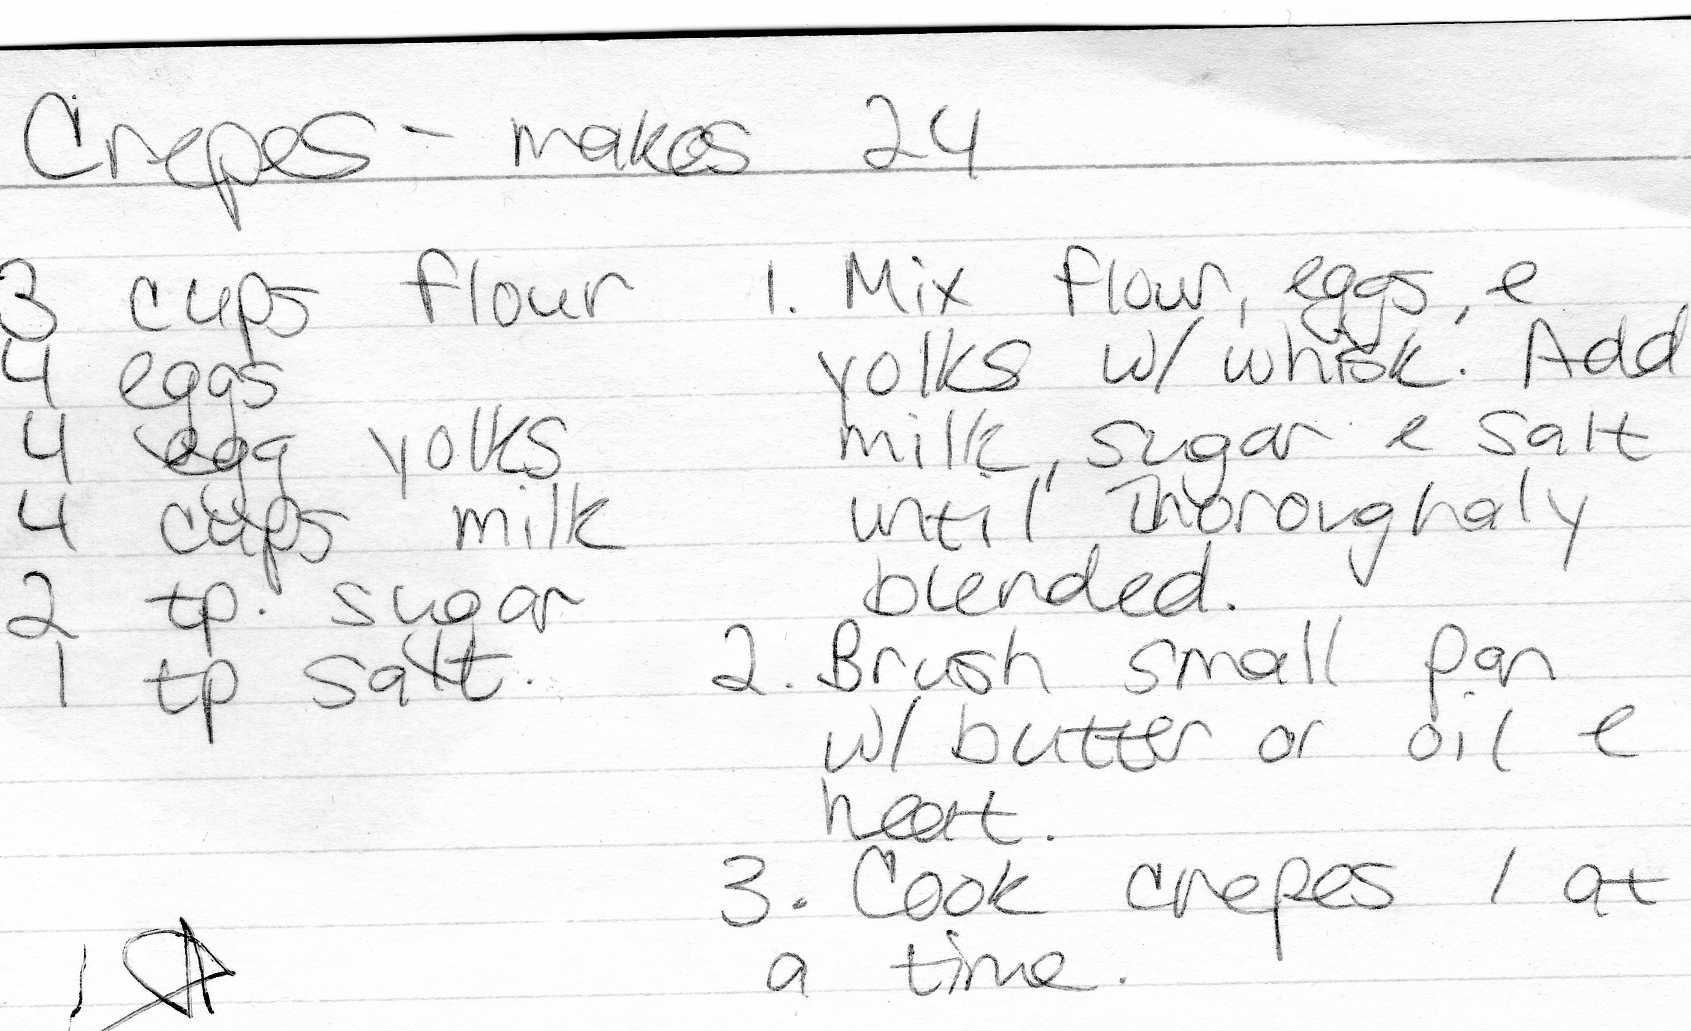 Crepes - makes 24
3 cups flour
4 eggs
4 egg yolks
4 cups milk
2 tp. sugar
1 tp salt.
1. Mix flour, eggs, e
yolks w/ whisk. Add
milk, sugar e salt
until thoroughaly
blended.
2. Brush small pan
w/ butter or oil e
heat.
3. Cook crepes 1 at
a time.
1